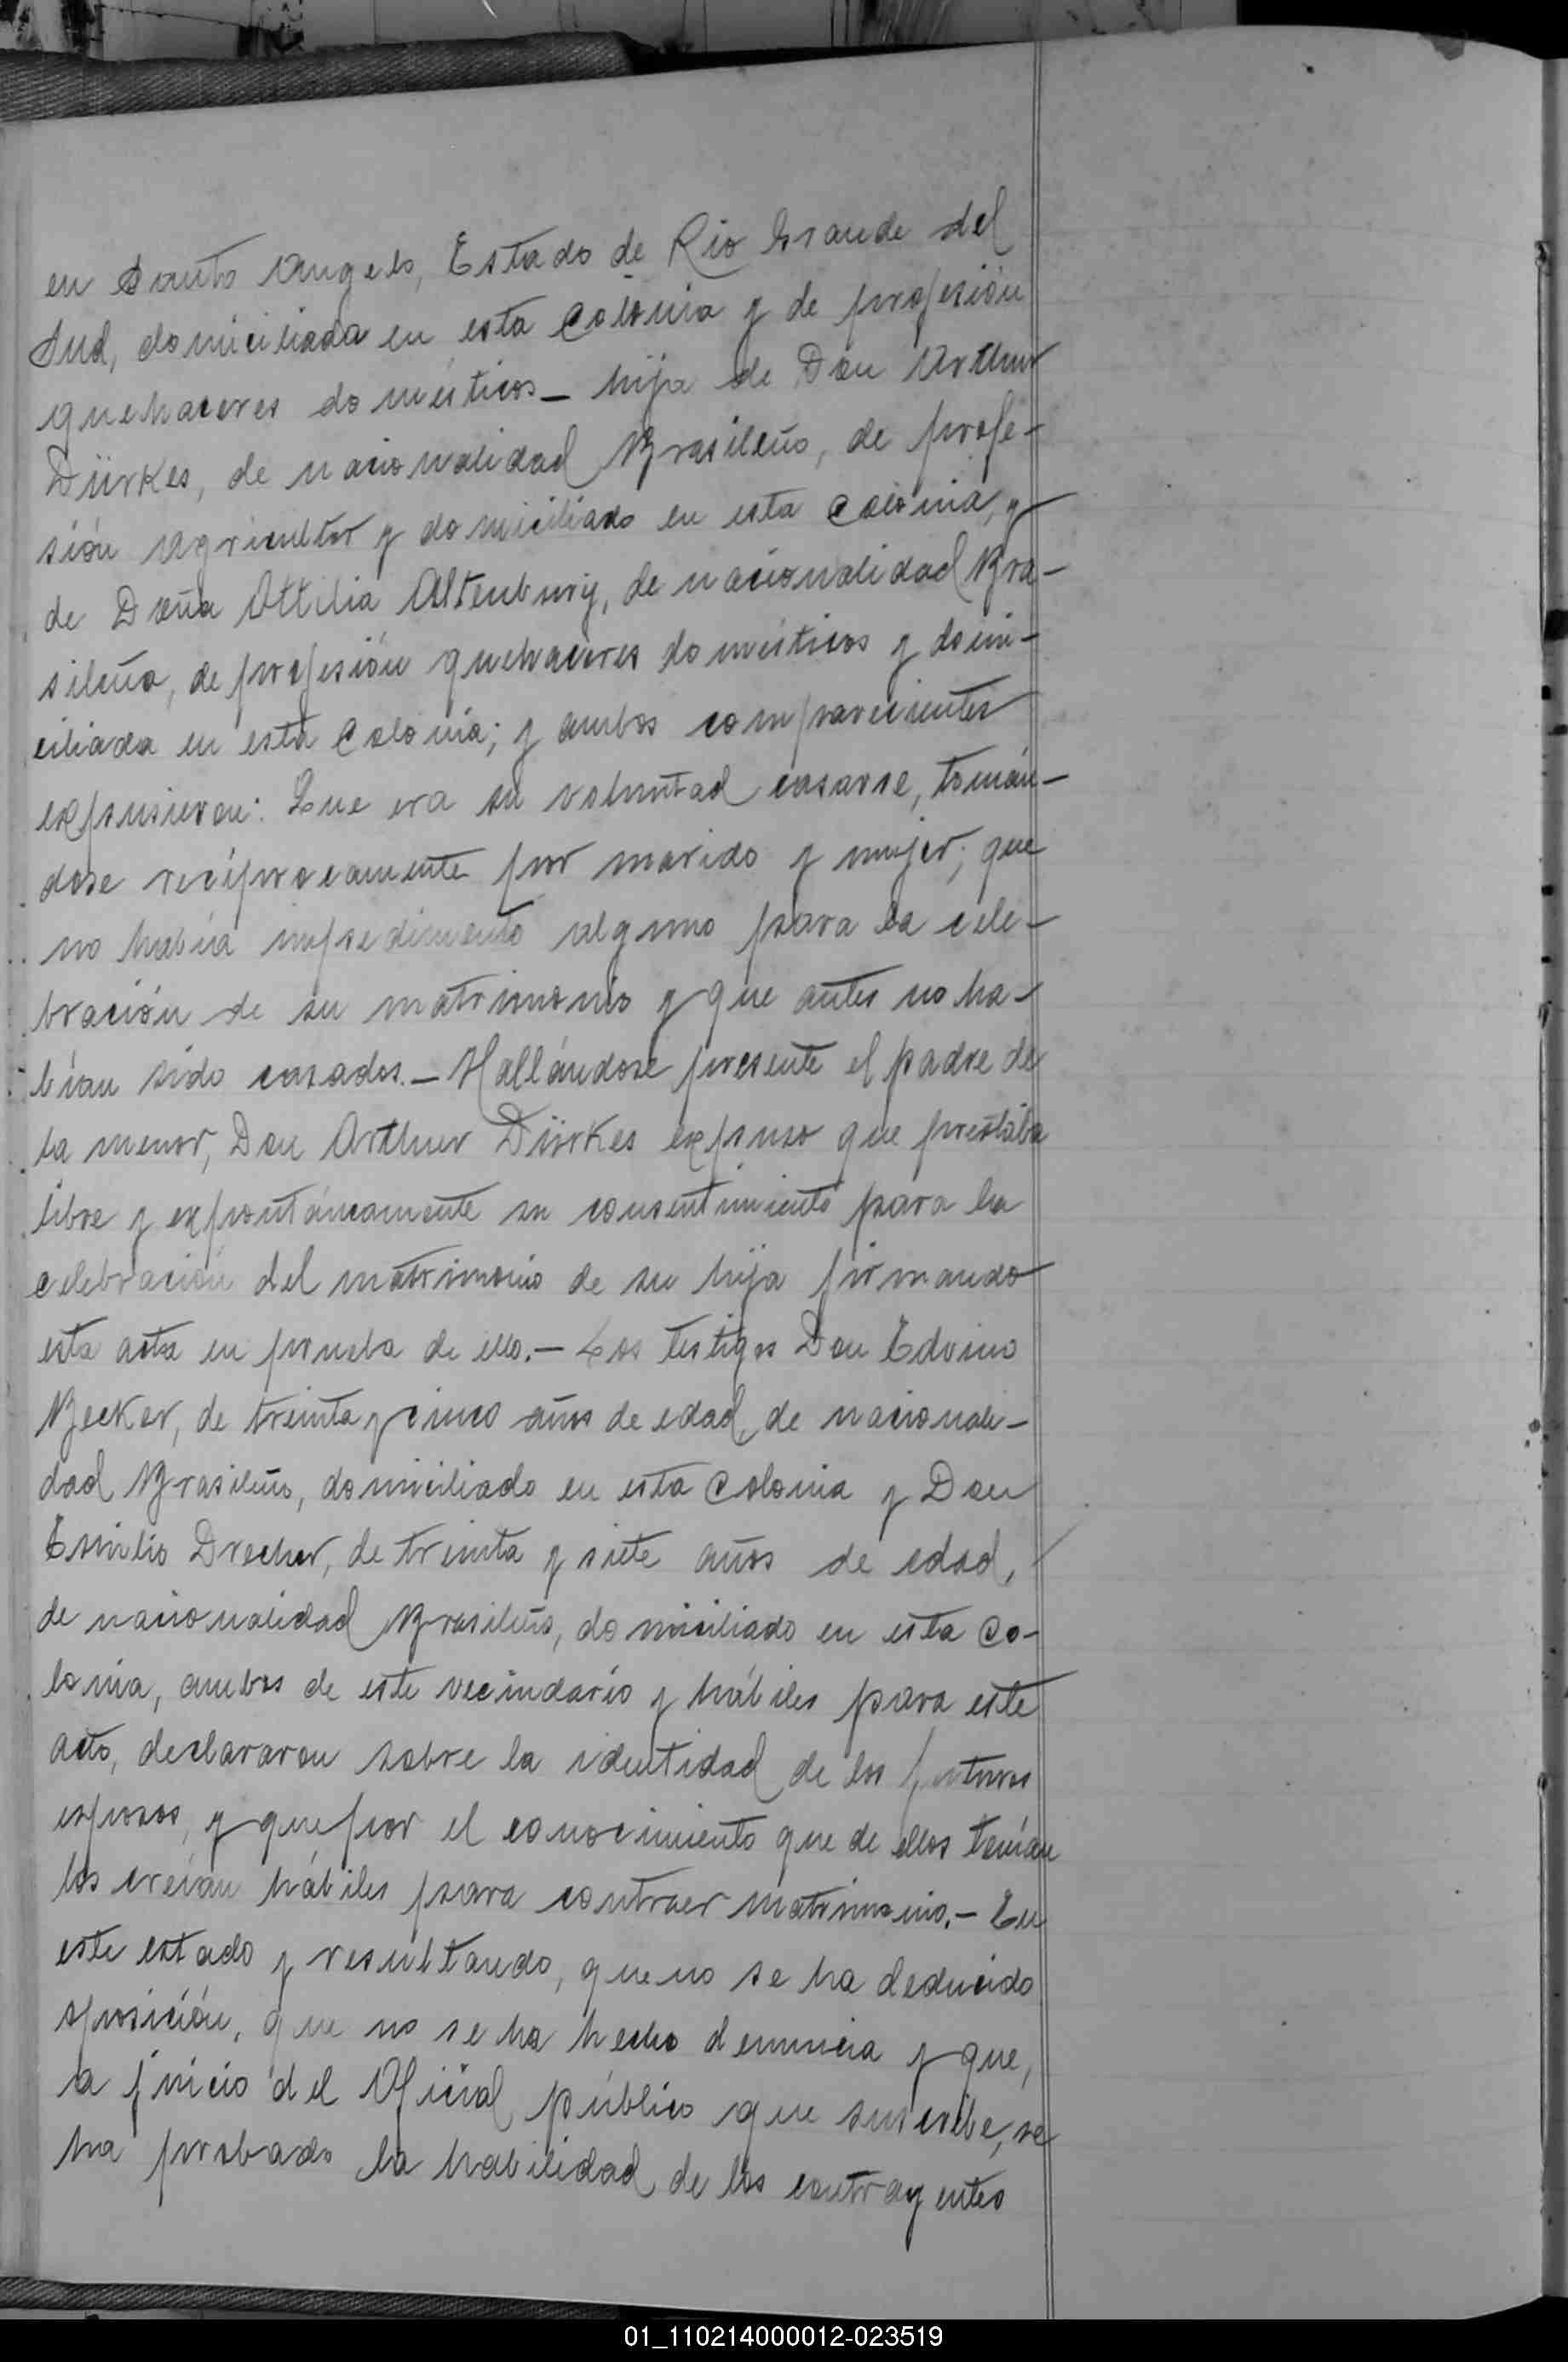 en Santo Angelo, Estado de Rio Grande del
Sud, domiciliada en esta Colonia y de profesión
quehaceres domésticos_ hija de Don Arthur
Dürkes, de nacionalidad Brasileño, de profe-
sión Agricultor y domiciliado en esta Colonia, y
de Doña Ottilia Altenburg, de nacionalidad Bra-
sileña, de profesión quehaceres domésticos y domi-
ciliada en esta Colonia; y ambos comparecientes
expusieron: Que era su voluntad casarse, tomán-
dose recíprocamente por marido y mujer; que
no había impedimento alguno para la cele-
bración de su matrimonio y que antes no ha-
bían sido casados._ Hallándose presente el padre de
la menor, Don Arthur Dürkes expuso que prestaba
libre y expontáneamente su consentimiento para la
celebración del matrimonio de su hija firmando
esta acta en prueba de ello.- Los testigos Don Edvino
Becker, de treinta y cinco años de edad, de nacionali-
dad Brasileño, domiciliado en esta Colonia y Don
Emilio Drecher, de treinta y siete años de edad,
de nacionalidad Brasileño, domiciliado en esta Co-
lonia, ambos de este vecindario y hábiles para este
acto, declararon sobre la identidad de los futuros
esposos, y que por el conocimiento que de ellos tenían
los creían hábiles para contraer matrimonio.- En
este estado y resultando, que no se ha deducido
oposición, que no se ha hecho denuncia y que,
a juicio del Oficial público que suscribe, se
ha probado la habilidad de los contrayentes
01_110214000012-023519